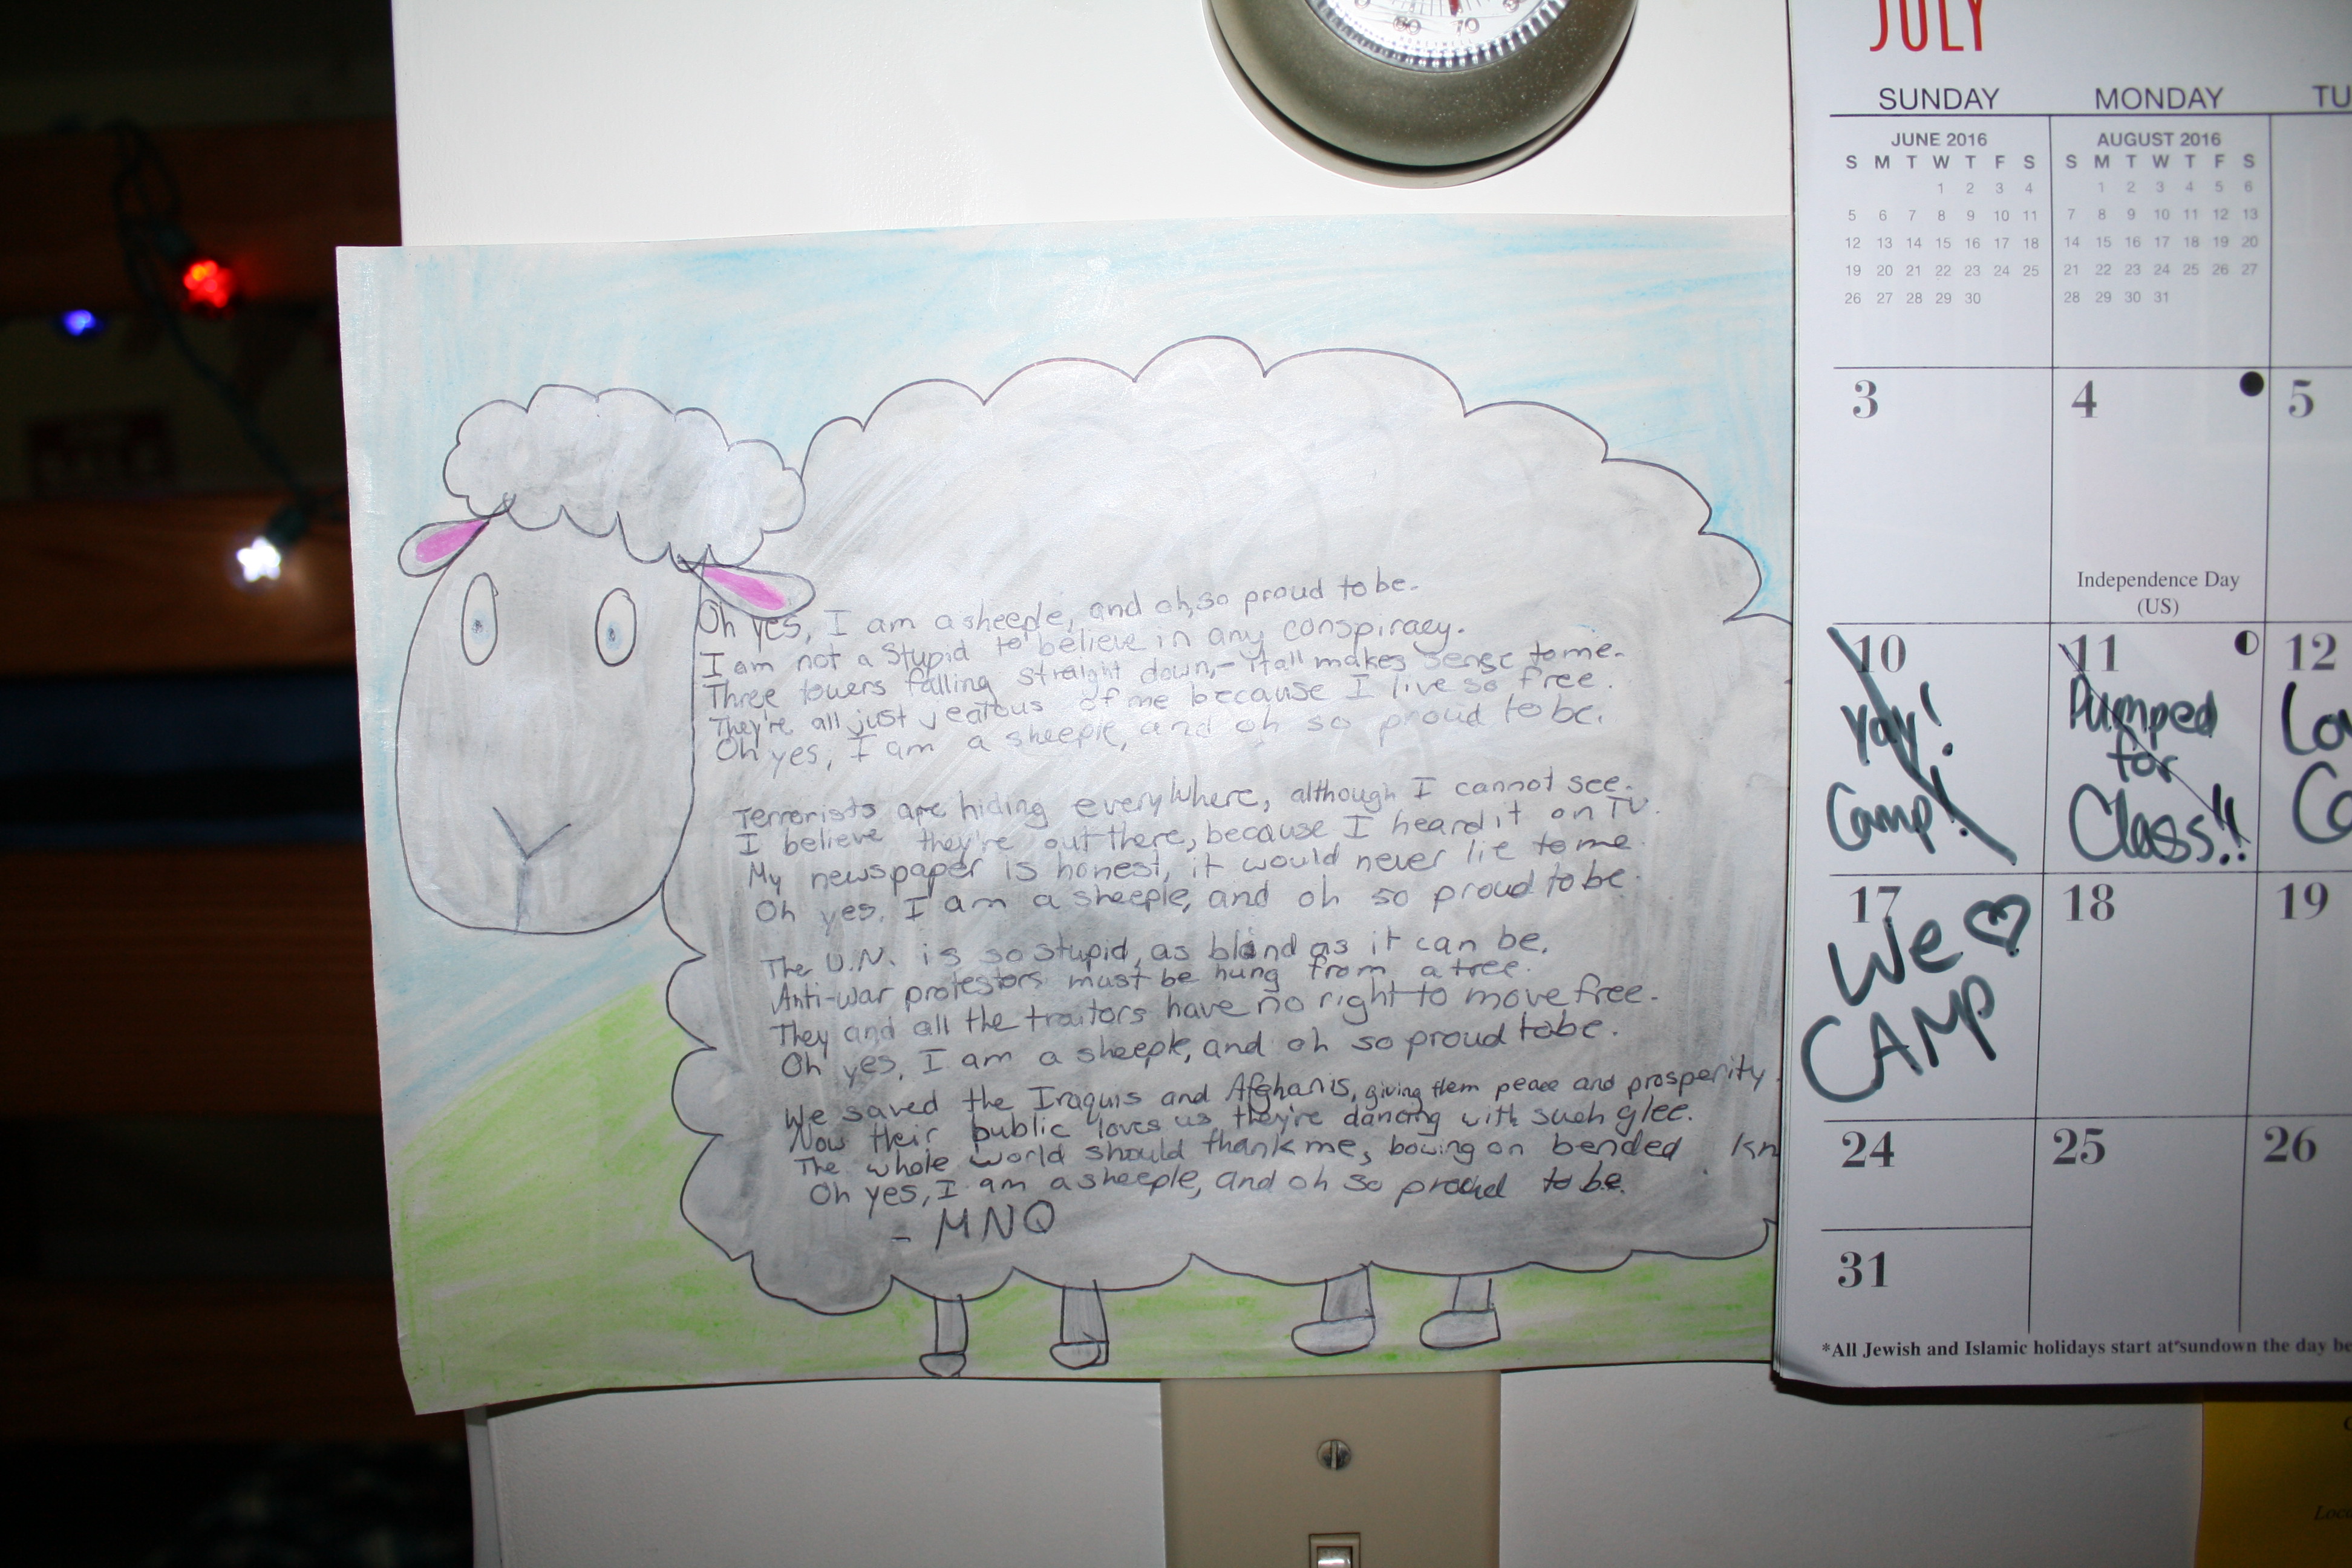 80 70
HONEYWELL
Oh yes, I am a sheeple, and oh, so proud to be.
I am not a stupid to believe in any conspiracy.
Three towers falling straight down, - it all makes sense to me.
They're all just jealous of me because I live so free.
Oh yes, I am a sheeple, and oh so proud to be.
Terrorists are hiding everywhere, although I cannot see.
I believe they're out there, because I heard it on TV.
My newspaper is honest, it would never lie to me.
Oh yes, I am a sheeple, and oh so proud to be.
The U.N. is so stupid, as blind as it can be.
Anti-war protestors must be hung from a tree.
They and all the traitors have no right to move free.
Oh yes, I am a sheeple, and oh so proud to be.
We saved the Iraquis and Afghanis, giving them peace and prosperity.
Now their public loves us they're dancing with such glee.
The whole world should thank me, bowing on bended kn
Oh yes, I am a sheeple, and oh so proud to be.
- MNQ
JULY
SUNDAY MONDAY TU
JUNE 2016
S M T W T F S
1 2 3 4
5 6 7 8 9 10 11
12 13 14 15 16 17 18
19 20 21 22 23 24 25
26 27 28 29 30
AUGUST 2016
S M T W T F S
1 2 3 4 5 6
7 8 9 10 11 12 13
14 15 16 17 18 19 20
21 22 23 24 25 26 27
28 29 30 31
3 4 5
Independence Day
(US)
10 11 12
Yay!
Camp!
Pumped
for
Class!!
Lo
Ca
17 18 19
We ♡
CAMP
24 25 26
31
*All Jewish and Islamic holidays start at sundown the day be